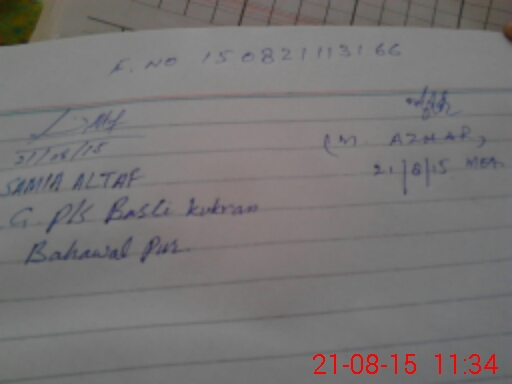 F. NO 150821113166
21/08/15
SAMIA ALTAF
G P/S Basti Kukran
Bahawal Pur
(M. AZHAR)
21/8/15
21-08-15 11:34